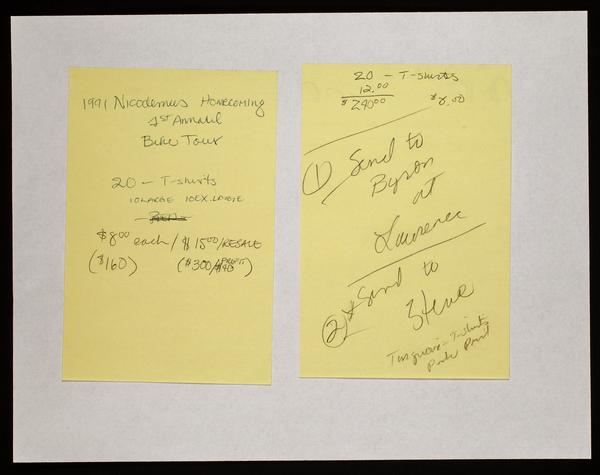 1991 Nicodemus Homecoming
1st Annual
Bike Tour
20 - T-shirts
10 LARGE 10 EX. LARGE
$8.00 each / $15.00 / RESALE
($160) ($300/
20 - T-shirts
12.00
$240.00 $8.00
(1) Send to
Byron
at
Lawrence
(2) Send to
Steve
Turquoise - T-shirts
Pink Print